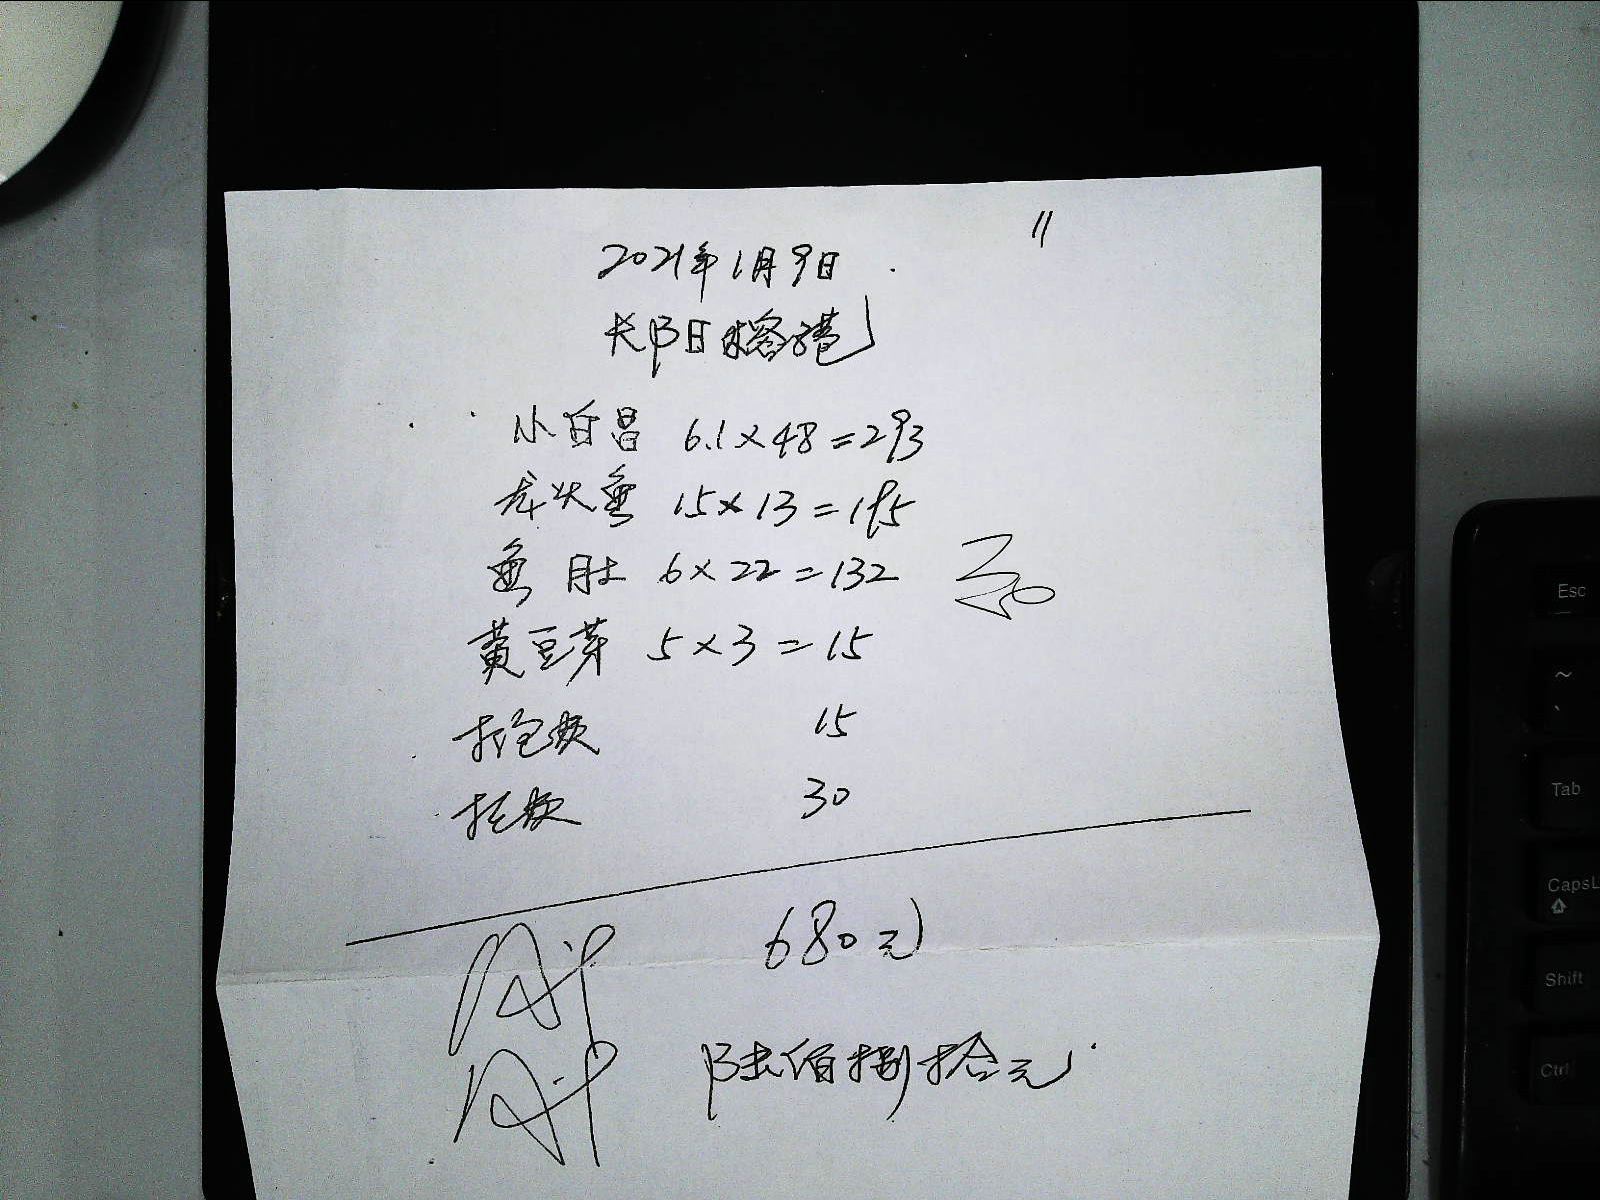 11
2021年1月9日
长阳日
小白昌 6.1×48=293
龙头鱼 15×13=195
鱼肚 6×22=132
黄豆芽 5×3=15
打包费 15
打费 30
680元
陆佰捌拾元
Esc
~
Tab
CapsL
Shift
Ctrl